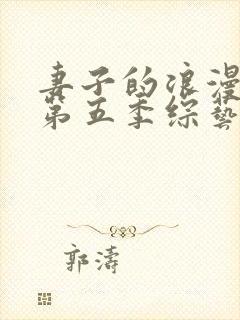 妻子的浪漫
第五季综藝
郭濤